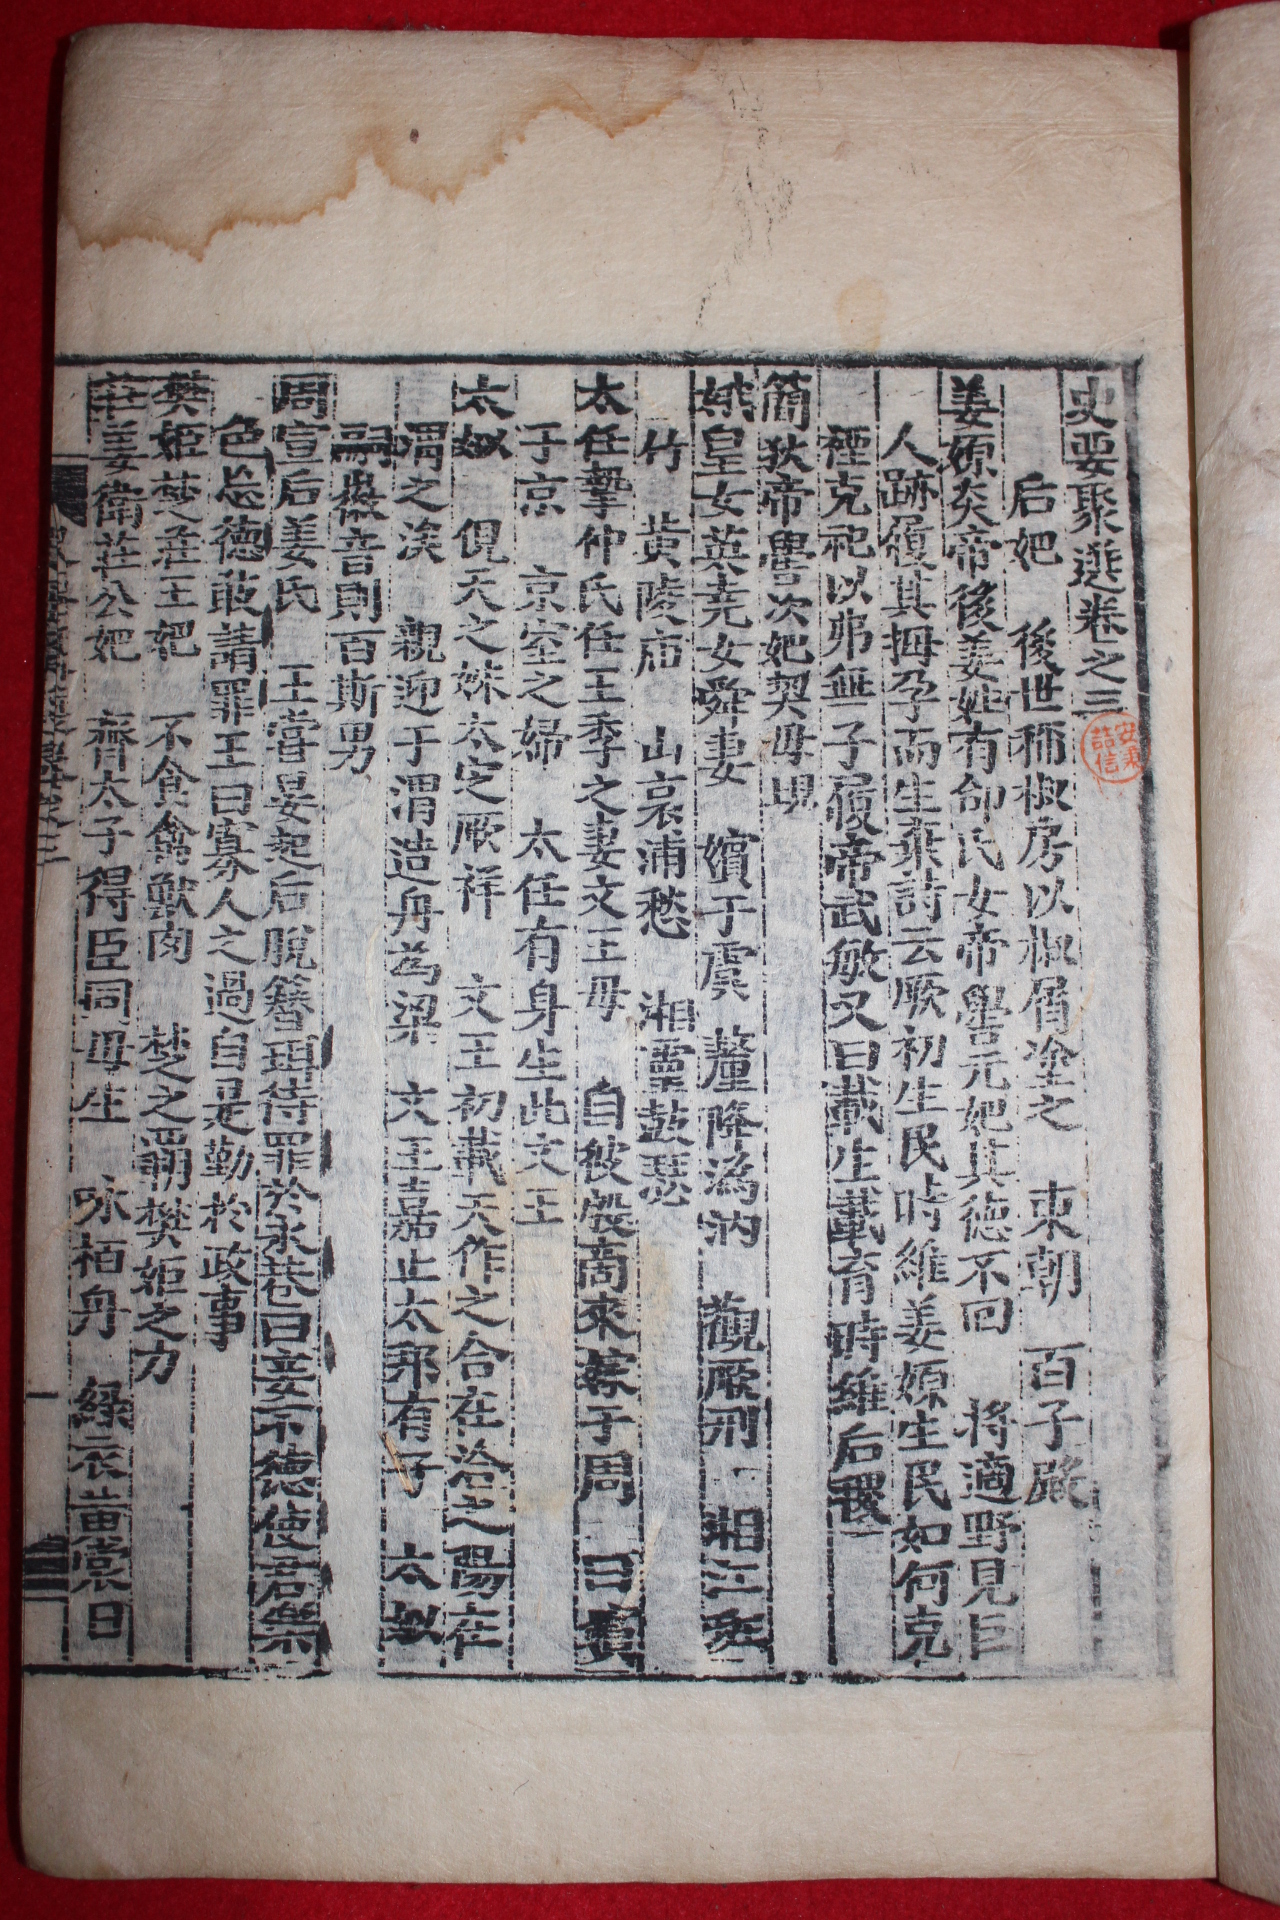 史要聚選卷之三
后妃 後世稱椒房以椒屑塗之 東朝 百子殿
姜嫄炎帝後姜姓有邰氏女帝嚳元妃其德不回 將適野見巨
人跡履其拇孕而生棄詩云厥初生民時維姜嫄生民如何克
禋克祀以弗無子履帝武敏又曰載生載育時維后稷
簡狄帝嚳次妃契母現
娥皇女英堯女舜妻 嬪于虞 釐降溈汭 觀厥刑 湘江班
竹 黃陵庙 山哀浦愁 湘靈鼓瑟
太任摯仲氏任王季之妻文王母 自彼殷商來嫁于周 曰嬪
于京 京室之婦 太任有身生此文王
太姒 俔天之妹太定厥祥 文王初載天作之合在洽之陽在
渭之涘 親迎于渭造舟為梁 文王嘉止太邦有子 太姒
嗣徽音則百斯男
周宣后姜氏 王嘗晏起后脫簪珥待罪於永巷曰妾不德使君樂
色忘德敢請罪王曰寡人之過自是勤於政事
樊姬楚庄王妃 不食禽獸肉 楚之霸樊姬之力
莊姜衛莊公妃 齊太子得臣同母生 咏栢舟 綠衣黃裳曰
一
安
喆信